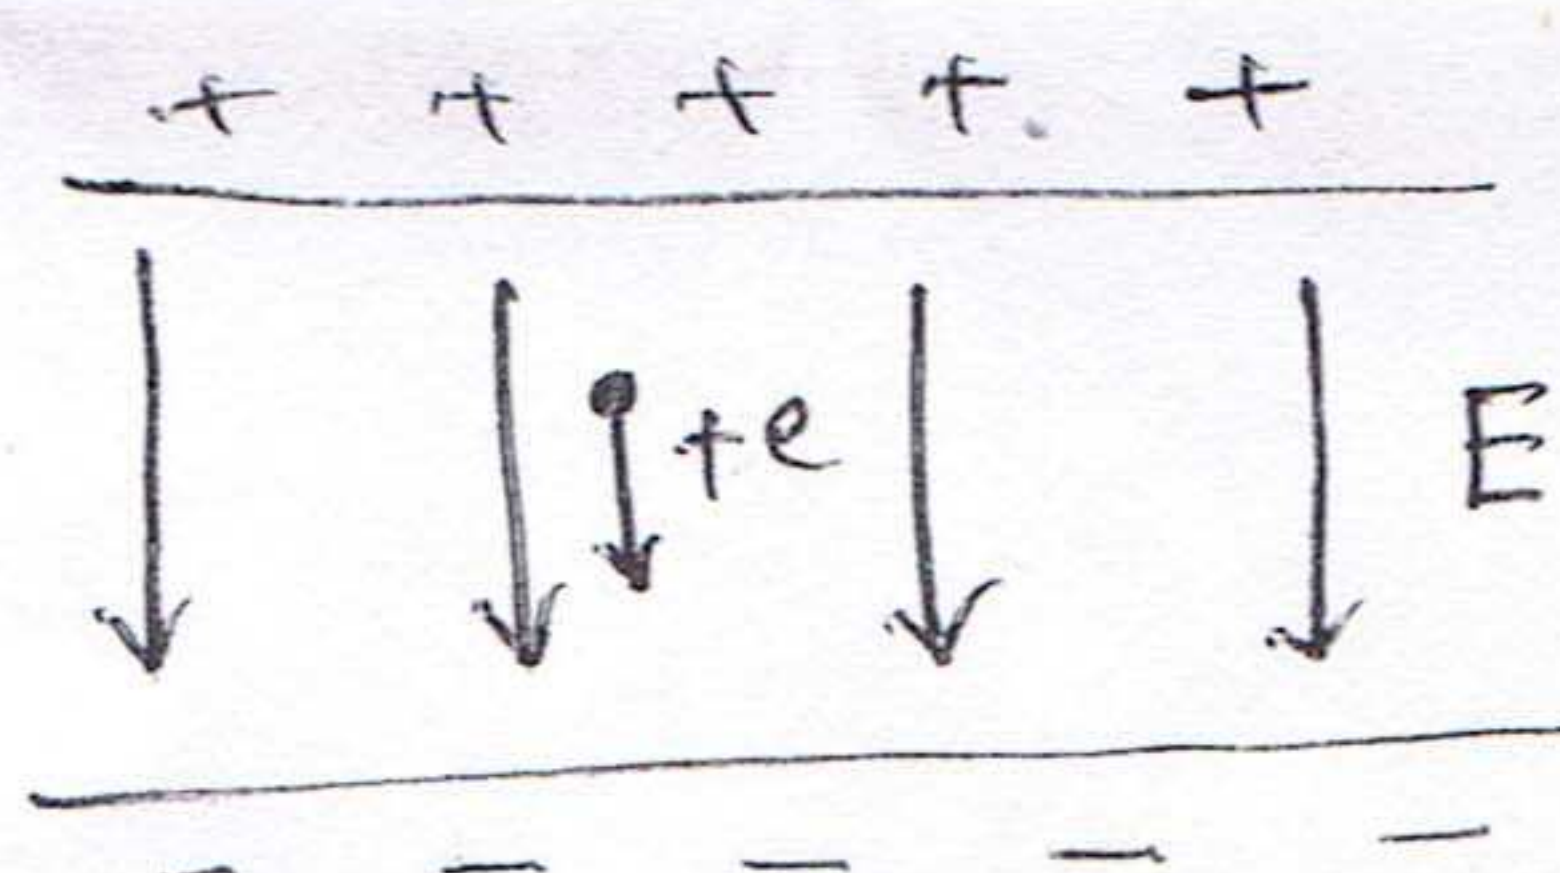 + + + + +
+e
E
- - - - -